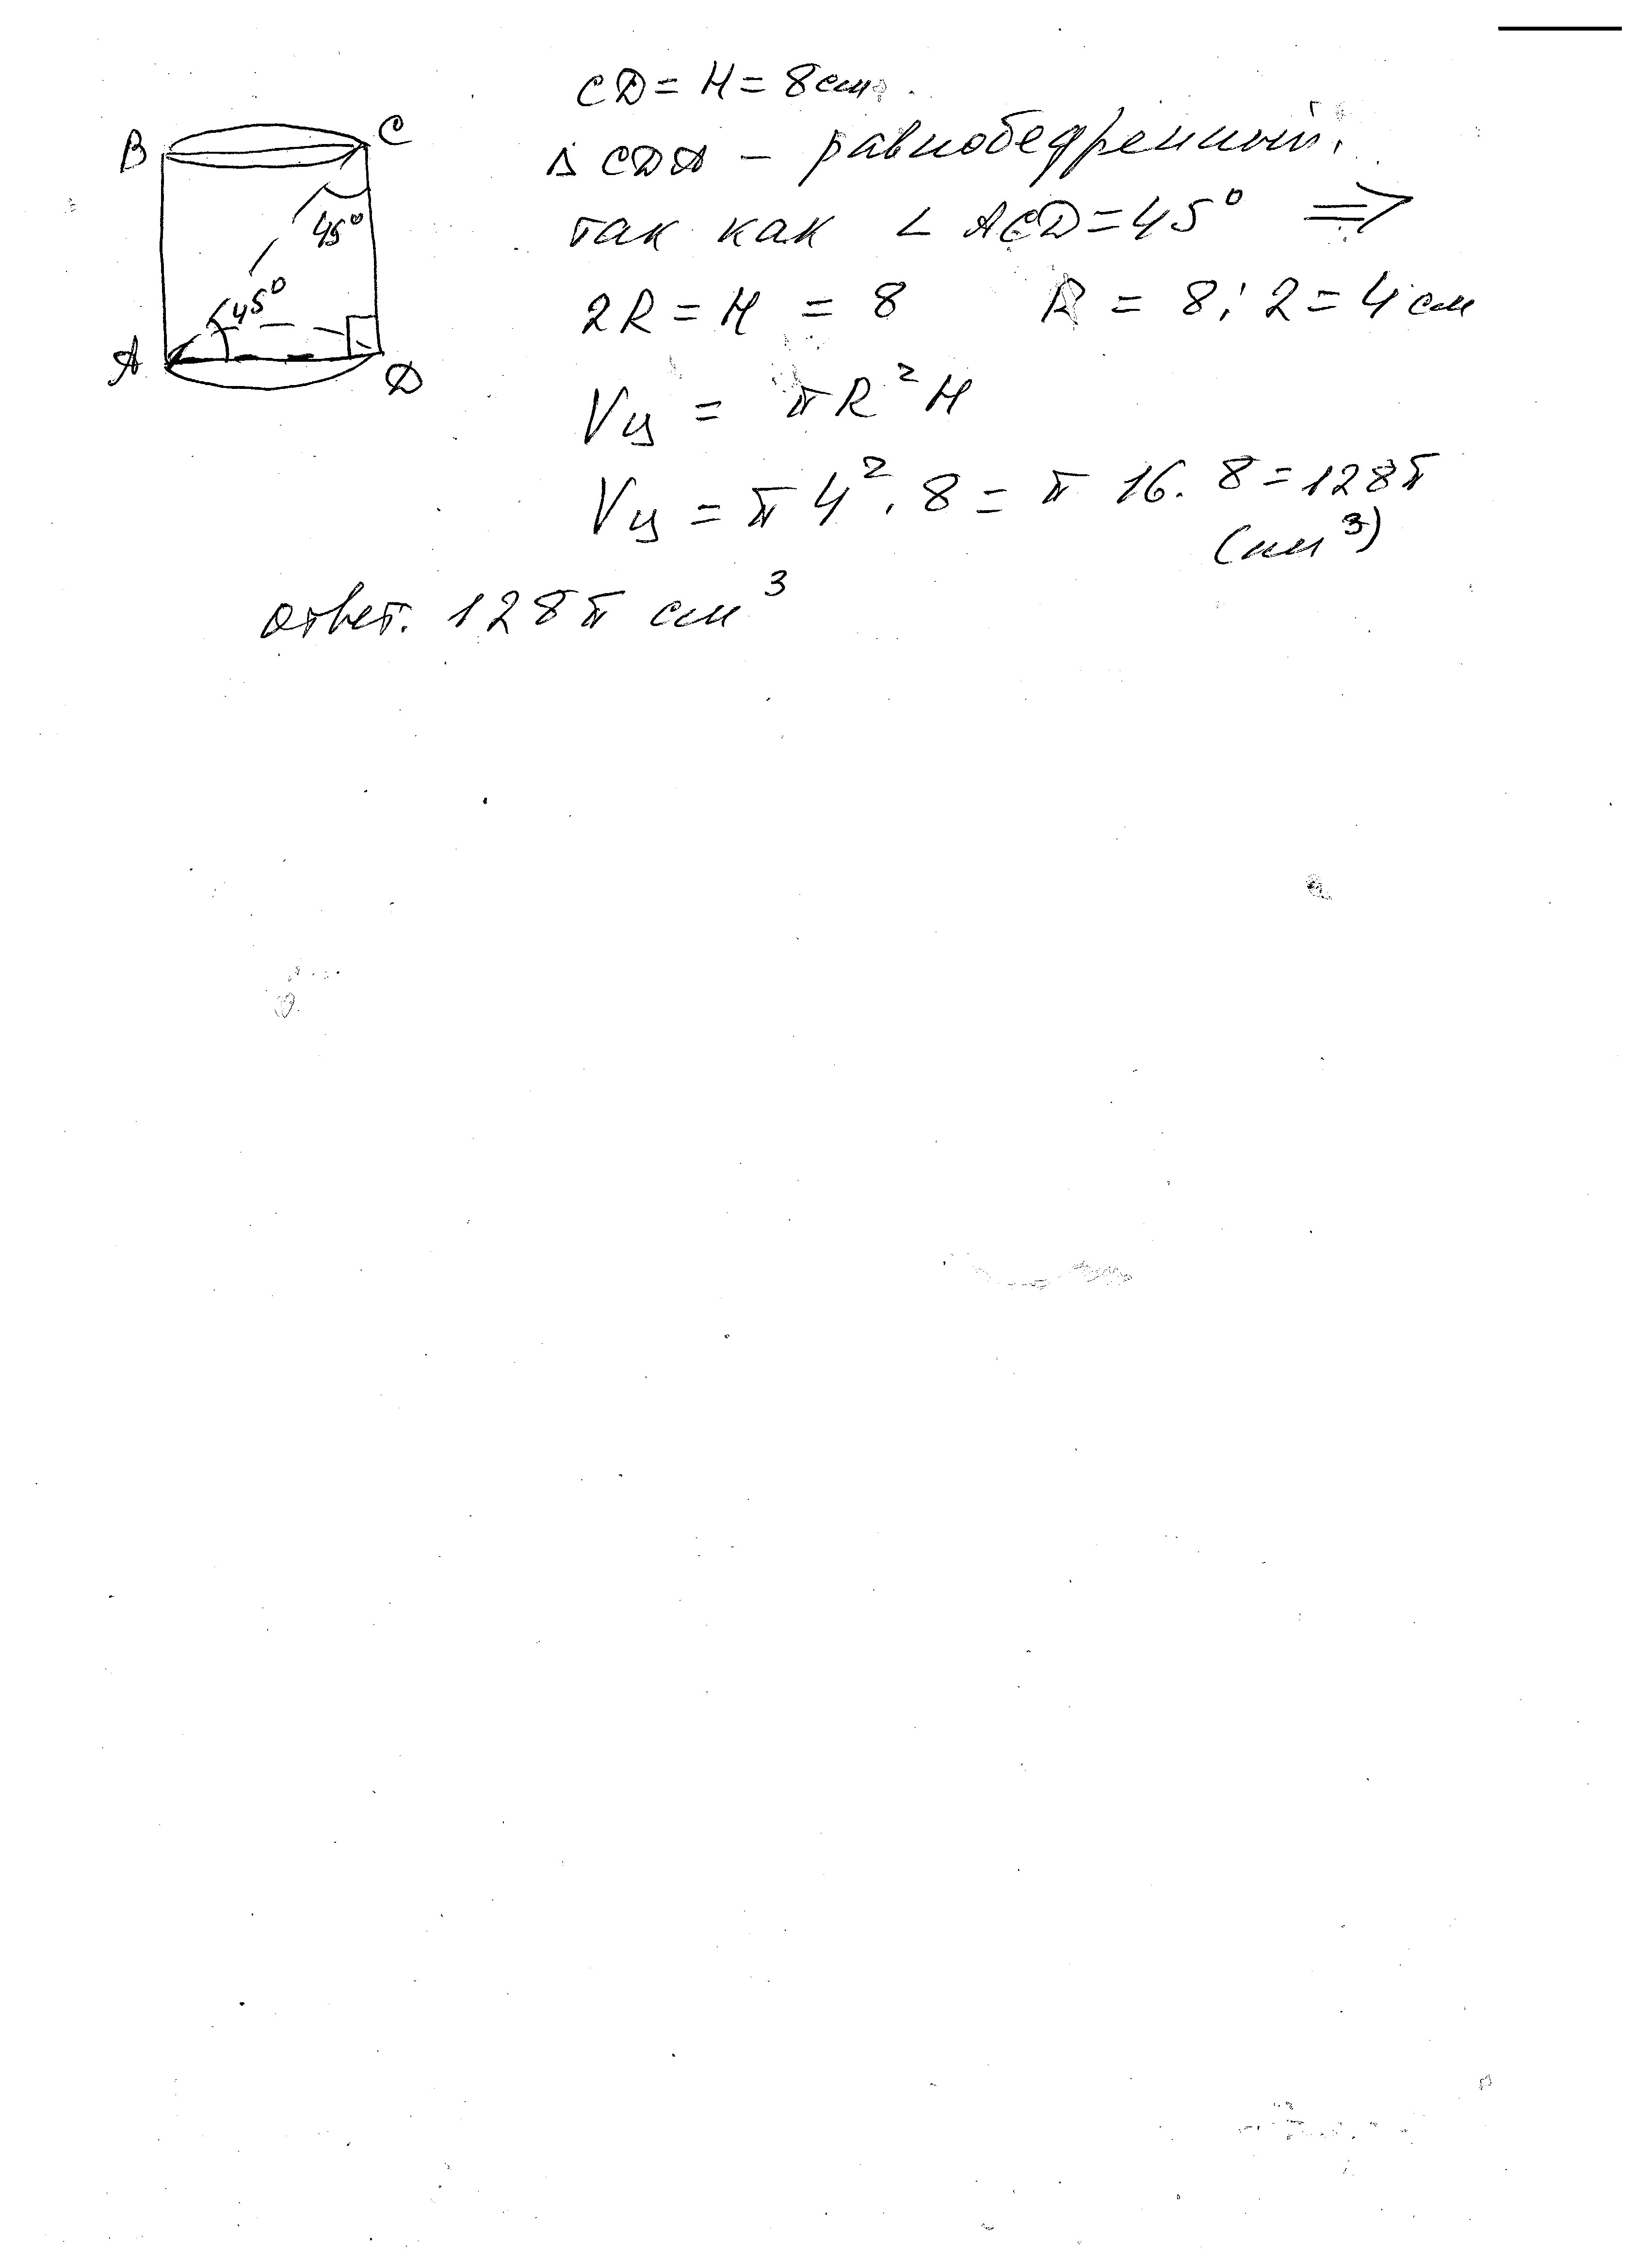 CD = H = 8см.
B
C
Δ CDA – равнобедренный,
45°
так как ∠ ACD = 45° ⇒
45°
2R = H = 8 R = 8 : 2 = 4 см
A
D
Vц = πR²H
Vц = π 4² · 8 = π 16 · 8 = 128π
(см³)
ответ. 128π см³